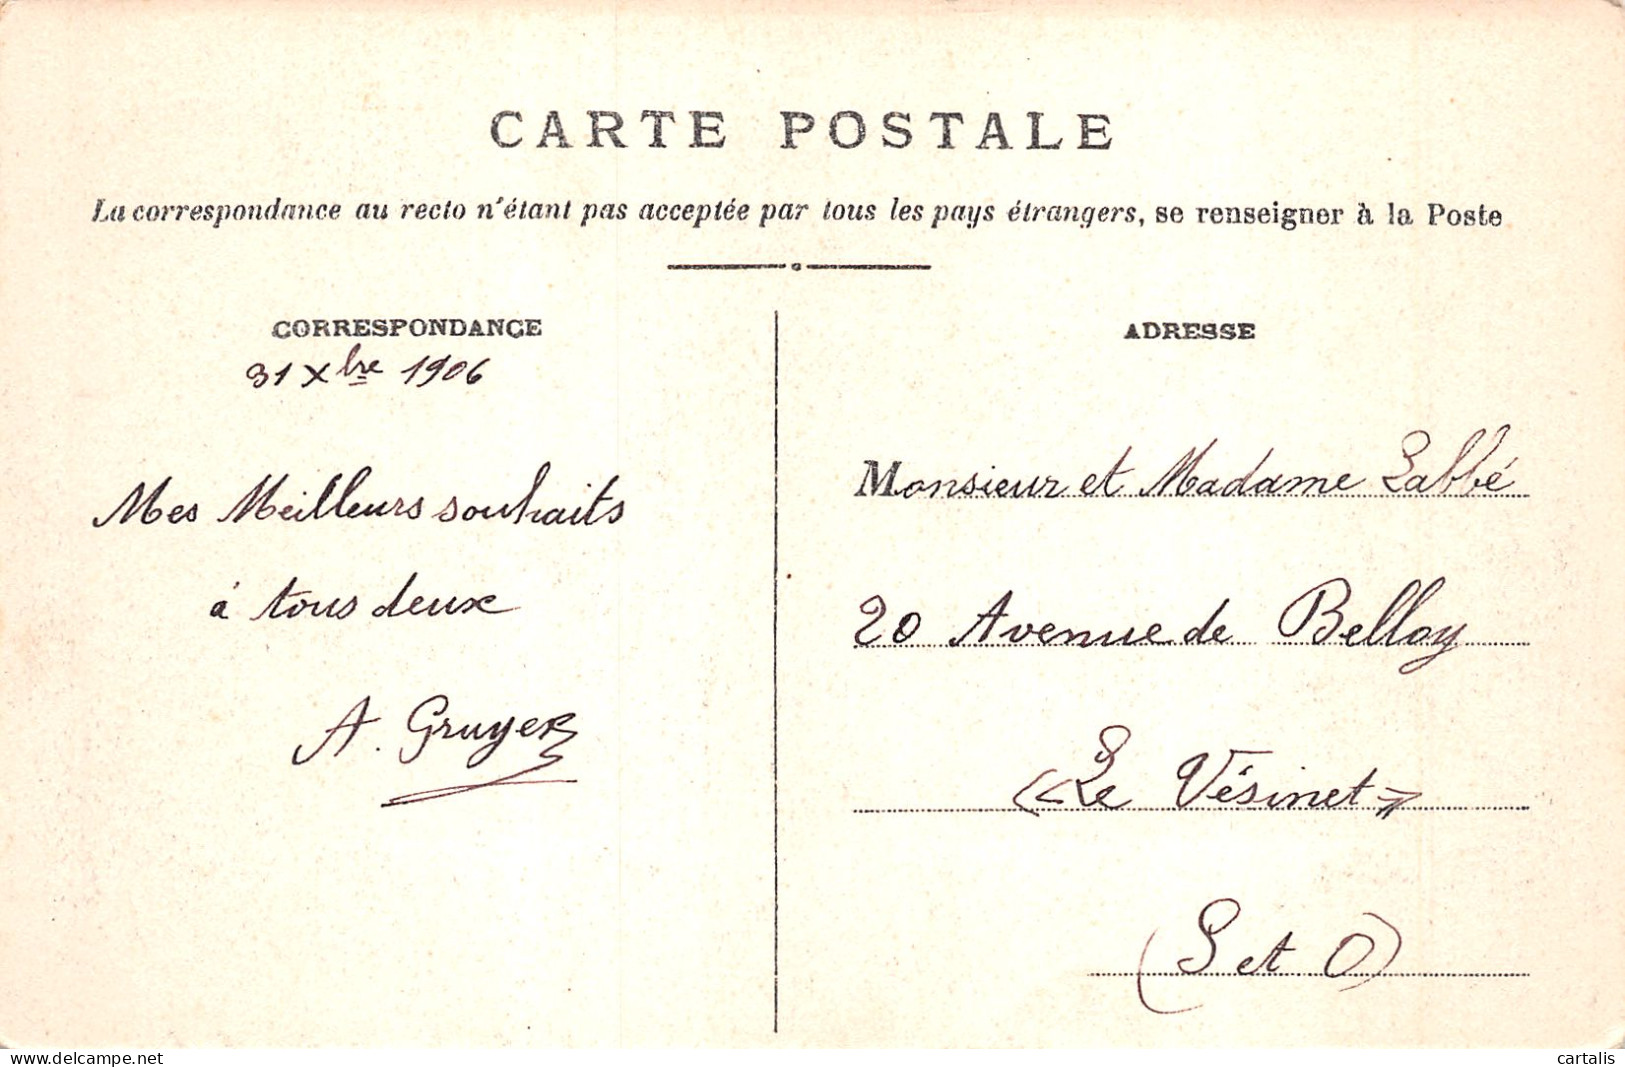 CARTE POSTALE
La correspondance au recto n'étant pas acceptée par tous les pays étrangers, se renseigner à la Poste
CORRESPONDANCE
31 Xbre 1906
Mes Meilleurs souhaits
à tous deux
A. Gruyer
ADRESSE
Monsieur et Madame Labbé
20 Avenue de Belloy
«Le Vésinet»
(S et O)
delcampe.net
cartalis